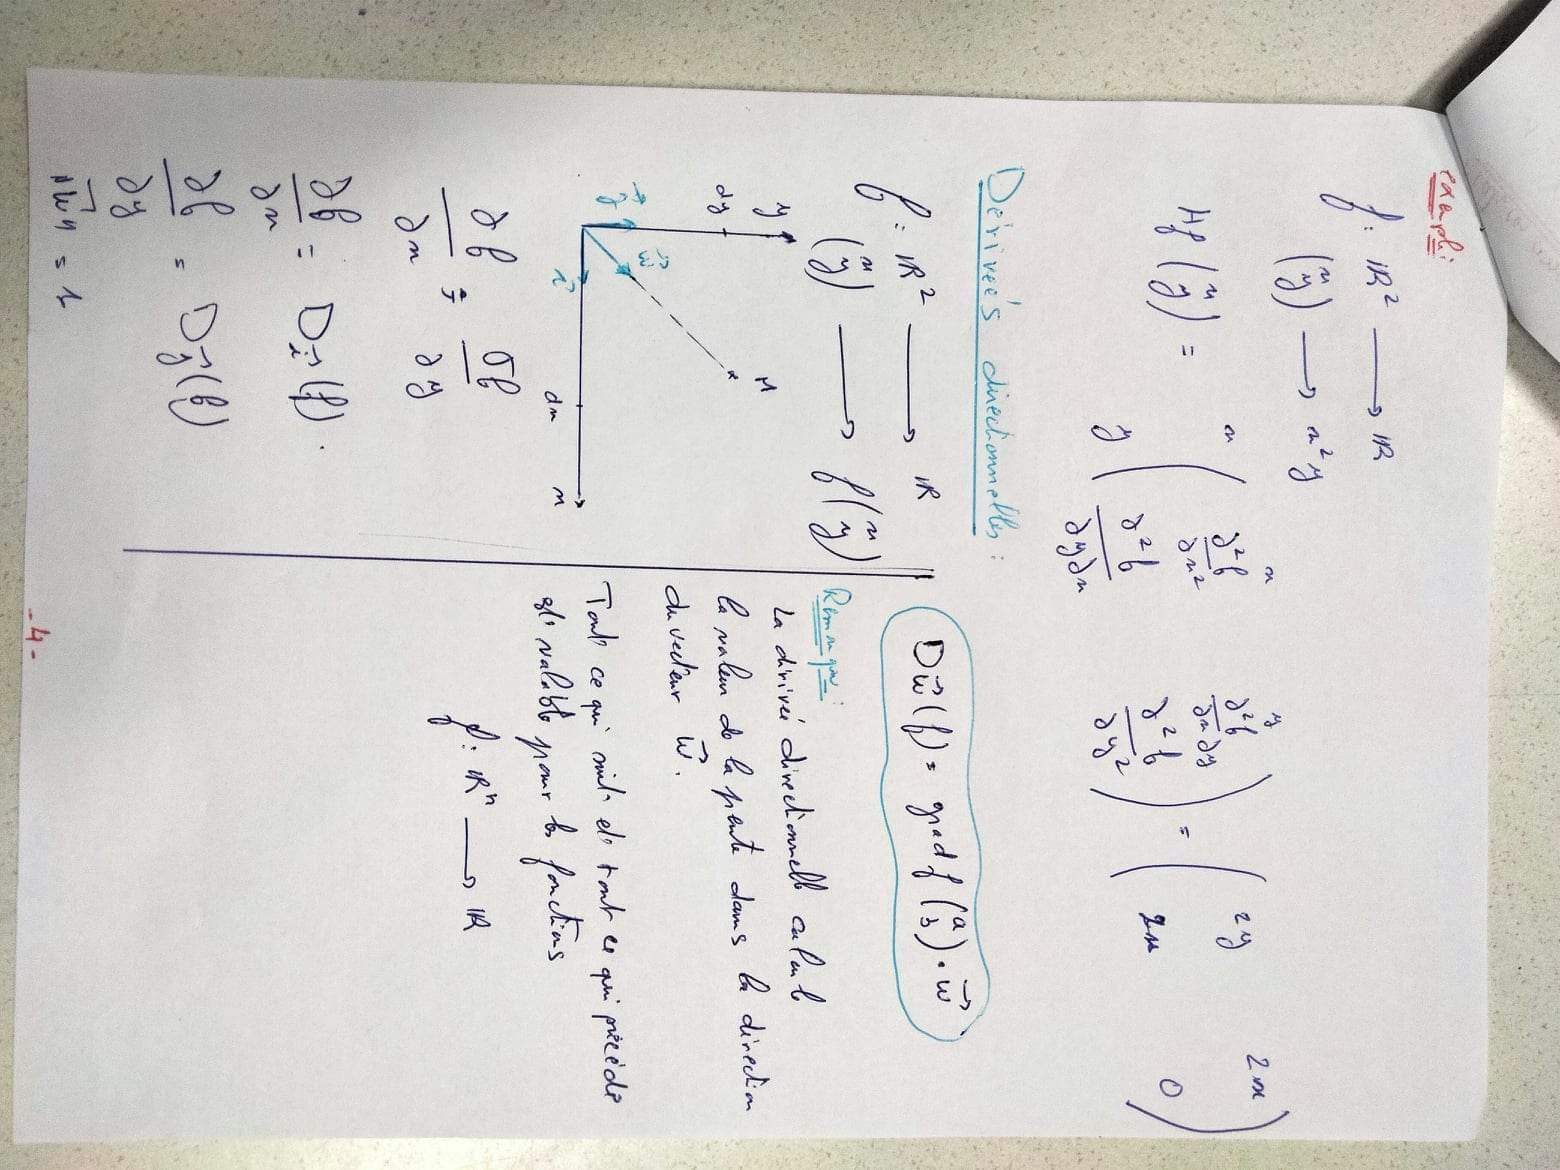 exemple:
f: ℝ² → ℝ
(x y) → x²y
Hf (x y) = x y ( ∂²f/∂x² ∂²f/∂x∂y ∂²f/∂y∂x ∂²f/∂y² ) = ( 2y 2x 2x 0 )
x y
Dérivées directionnelles :
f: ℝ² → ℝ
(x y) → f(x y)
y
dy
M
w⃗
j⃗
i⃗
dx
x
∂f/∂x ; ∂f/∂y
∂f/∂x = D i⃗ (f).
∂f/∂y = D j⃗ (f)
‖w⃗‖ = 1
D w⃗ (f) = grad f (a b) · w⃗
Remarque:
La dérivée directionnelle calcule
la valeur de la pente dans la direction
du vecteur w⃗.
Tout ce qui suit et tout ce qui précède
est valable pour les fonctions
f: ℝⁿ → ℝ
-4-